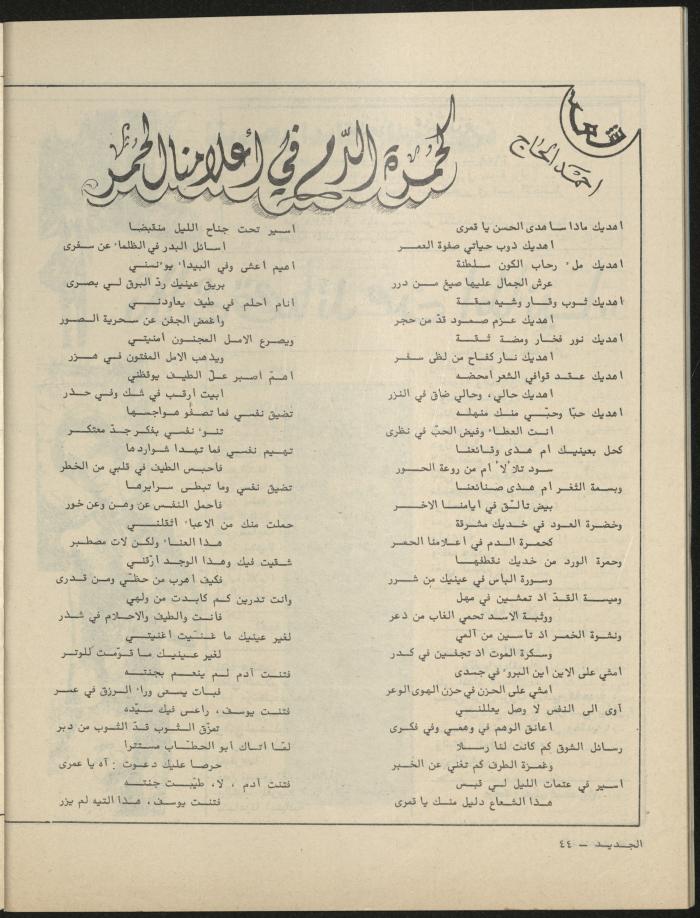 شعر
احمد الحاج
كحمرة الدّم في أعلامنا الحمر
اهديك ماذا ساهدى الحسن يا قمرى
اهديك ذوب حياتي صفوة العمر
اهديك ملء رحاب الكون سلطنة
عرش الجمال عليها صيغ من درر
اهديك ثوب وقار وشيه مقة
اهديك عزم صمود قدّ من حجر
اهديك نور فخار ومضة ثقة
اهديك نار كفاح من لظى سقر
اهديك عقد قوافي الشعر امحضه
اهديك حالي، وحالي ضاق في النزر
اهديك حبّا وحبّي منك منهله
انت العطاء وفيض الحبّ في نظرى
كحل بعينيك أم هذى وقائعنا
سود تلألأ أم من روعة الحور
وبسمة الثغر ام هذى صنائعنا
بيض تألّق في أيامنا الاخر
وخضرة العود في خديك مشرقة
كحمرة الدم في اعلامنا الحمر
وحمرة الورد من خديك نقطفها
وسورة البأس في عينيك من شرر
وميسة القدّ اذ تمشين في مهل
ووثبة الاسد تحمي الغاب من ذعر
ونشوة الخمر اذ تأسين من ألمي
وسكرة الموت اذ تجفين في كدر
امشي على الاين أين البروء في جسدى
امشي على الحزن في حزن الهوى الوعر
آوى الى النفس لا وصل يعللني
أعانق الوهم في وهمي وفي فكرى
رسائل الشوق كم كانت لنا رسلا
وغمزة الطرف كم تغني عن الخبر
اسير في عتمات الليل لي قبس
هذا الشعاع دليل منك يا قمرى
اسير تحت جناح الليل منقبضا
اسائل البدر في الظلماء عن سفرى
اهيم اعشى وفي البيداء يوءنسني
بريق عينيك ردّ البرق لي بصرى
انام احلم في طيف يعاودني
واغمض الجفن عن سحرية الصور
ويصرع الامل المجنون أمنيتي
ويذهب الامل المفتون في هزر
اهمّ اصبر علّ الطيف يوقظني
ابيت أرقب في شك وفي حذر
تضيق نفسي فما تصفو هواجسها
تنوء نفسي بفكر جدّ معتكر
تهيم نفسي فما تهدا شواردها
فأحبس الطيف في قلبي من الخطر
تضيق نفسي وما تبطى سرايرها
فأحمل النفس عن وهن وعن خور
حملت منك من الاعباء اثقلني
هذا العناء ولكن لات مصطبر
شقيت فيك وهذا الوجد أرّقني
فكيف أهرب من حظّي ومن قدرى
وانت تدرين كم كابدت من ولهي
فأنت والطيف والاحلام في شذر
لغير عينيك ما غنّيت أغنيتي
لغير عينيك ما قرّمت للوتر
فتنت آدم لم ينعم بجنته
فبات يسعى وراء الرزق في عسر
فتنت يوسف، راعى فيك سيّده
تمزّق الثوب قدّ الثوب من دبر
لمّا أتاك أبو الحطّاب مستترا
حرصا عليك دعوت : آه يا عمرى
فتنت آدم ، لا، طيّبت جنته
فتنت يوسف، هذا التيه لم يزر
الجديد – ٤٤